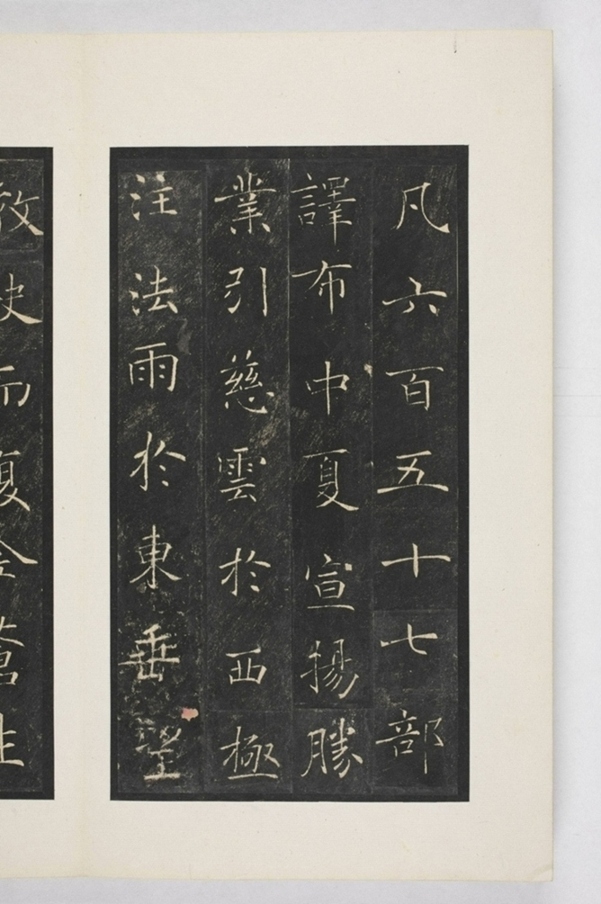 凡六百五十七部
譯布中夏宣揚勝
業引慈雲於西極
注法雨於東垂聖
教缺而復全蒼生